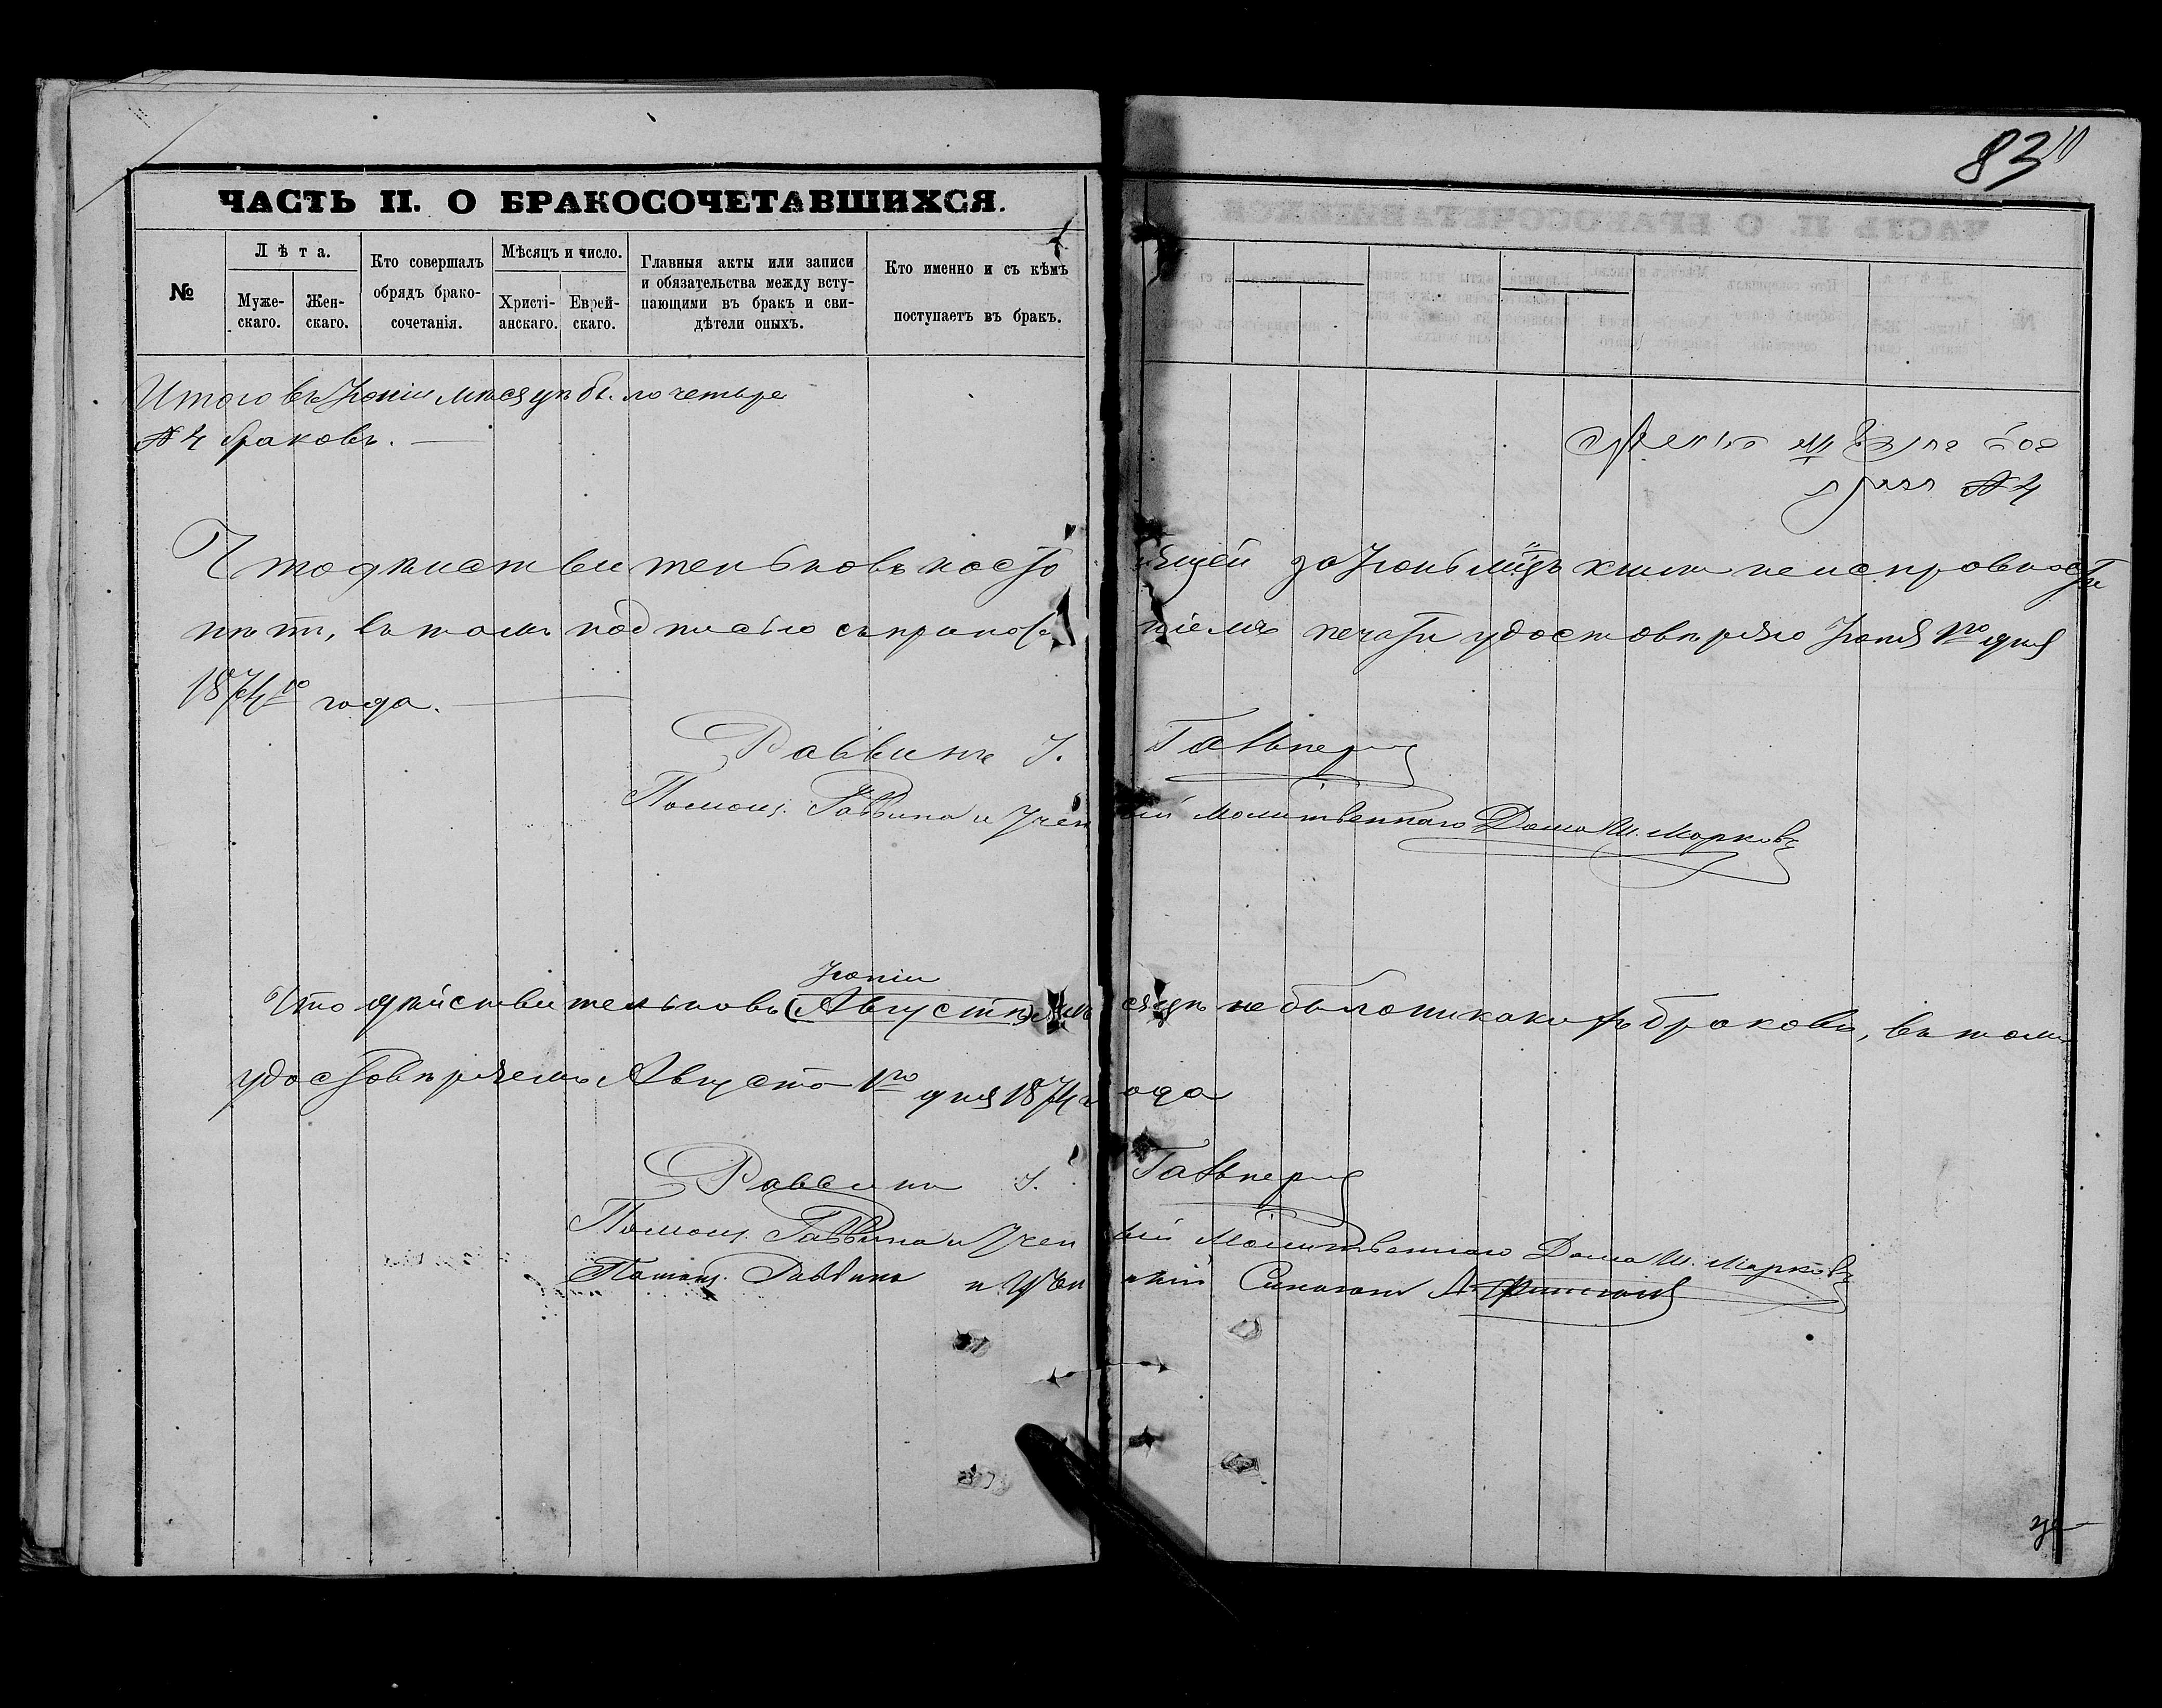 83
ЧАСТЬ II. О БРАКОСОЧЕТАВШИХСЯ.
№
Лѣта.
Муже-
скаго.
Жен-
скаго.
Кто совершалъ
обрядъ брако-
сочетанія.
Мѣсяцъ и число.
Христі-
анскаго.
Еврей-
скаго.
Главныя акты или записи
и обязательства между всту-
пающими въ бракъ и сви-
дѣтели оныхъ.
Кто именно и съ кѣмъ
поступаетъ въ бракъ.
Итого въ Іюніи мѣсяцѣ было четыре
№ 4 браковъ.
№ 4
Что дѣйствительно въ настоящей за Іюнь мѣцъ книги неисправности
нѣтъ, въ томъ подписью съ приложеніемъ печати удостовѣряю Іюля 1го дня
1874го года.
Раввинъ І. Гальпернъ
Помощ. Раввина и Учен ый Молитвеннаго Дома Ш. Марковъ
Іюли
Что дѣйствительно въ (Августѣ) мѣсяцѣ не было никакихъ браковъ, въ томъ
удостовѣряемъ Августа 1го дня 1874 года
Раввинъ І. Гальпернъ
Помощ. Раввина и Учен ый Молитвеннаго Дома Ш. Марковъ
Помощ. Раввина и Учен ый Синагоги